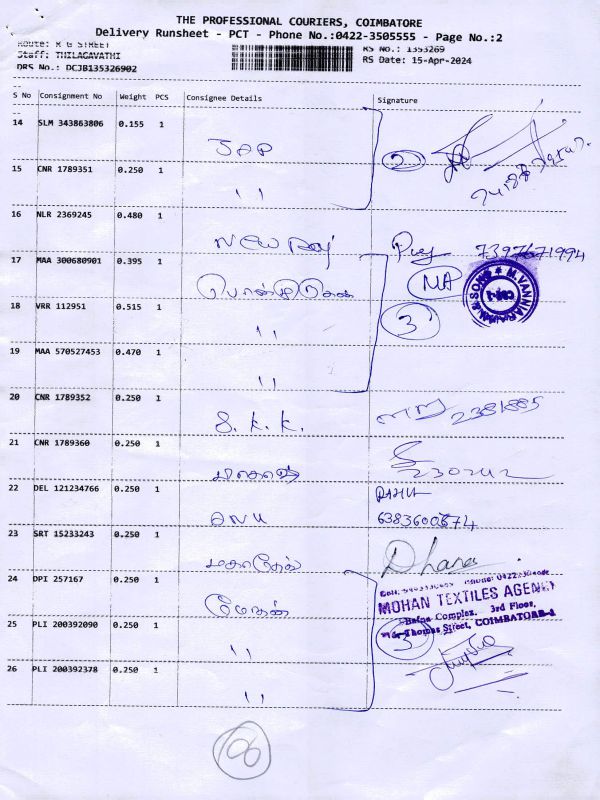 THE PROFESSIONAL COURIERS, COIMBATORE
Delivery Runsheet - PCT - Phone No.:0422-3505555 - Page No.:2
Route: R G STREET
RS No.: 1353269
Staff: THILAGAVATHI
RS Date: 15-Apr-2024
DRS No.: DCJB135326902
S No Consignment No Weight PCS Consignee Details Signature
14 SLM 343863806 0.155 1
2
15 CNR 1789351 0.250 1
''
16 NLR 2369245 0.480 1
New Raj
7397671994
17 MAA 300680901 0.395 1
NA
18 VRR 112951 0.515 1
''
3
19 MAA 570527453 0.470 1
''
20 CNR 1789352 0.250 1
S. K. K.
2381885
21 CNR 1789360 0.250 1
22 DEL 121234766 0.250 1
ANU
23 SRT 15233243 0.250 1
மகாதேவ்
Dhana
24 DPI 257167 0.250 1
மோகன்
MOHAN TEXTILES AGENCY
Bafna Complex, 3rd Floor,
Thomas Street, COIMBATORE-1
25 PLI 200392090 0.250 1
''
3
26 PLI 200392378 0.250 1
''